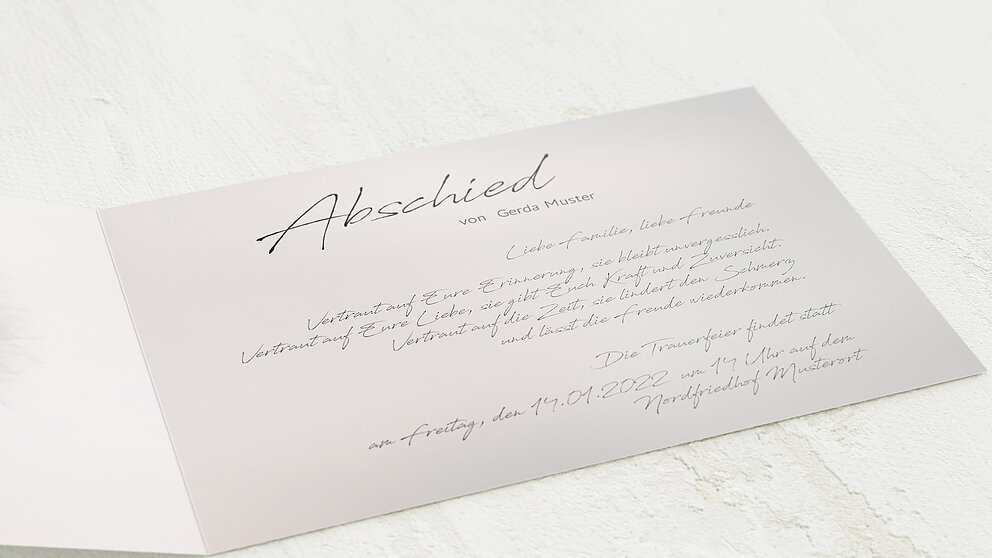 Abschied
von Gerda Muster
Liebe Familie, liebe Freunde
Vertraut auf Eure Erinnerung, sie bleibt unvergesslich.
Vertraut auf Eure Liebe, sie gibt Euch Kraft und Zuversicht.
Vertraut auf die Zeit, sie lindert den Schmerz
und lässt die Freude wiederkommen.
Die Trauerfeier findet statt
am Freitag, den 14.01.2022 um 14 Uhr auf dem
Nordfriedhof Musterort